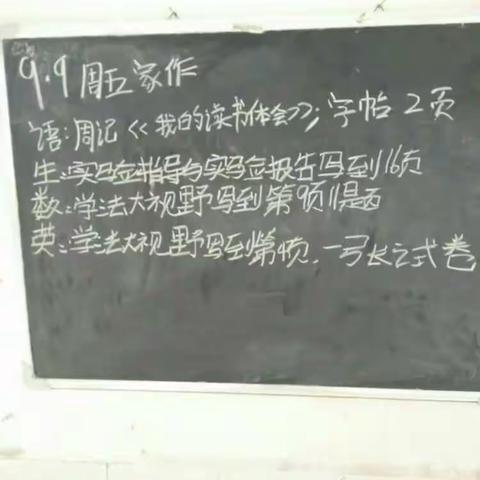 9.9周五家作
语:周记《我的读书体会》;字帖2页
生:实验指导与实验报告写到16页
数:学法大视野写到第9页1题
英:学法大视野写到第4页.一张试卷